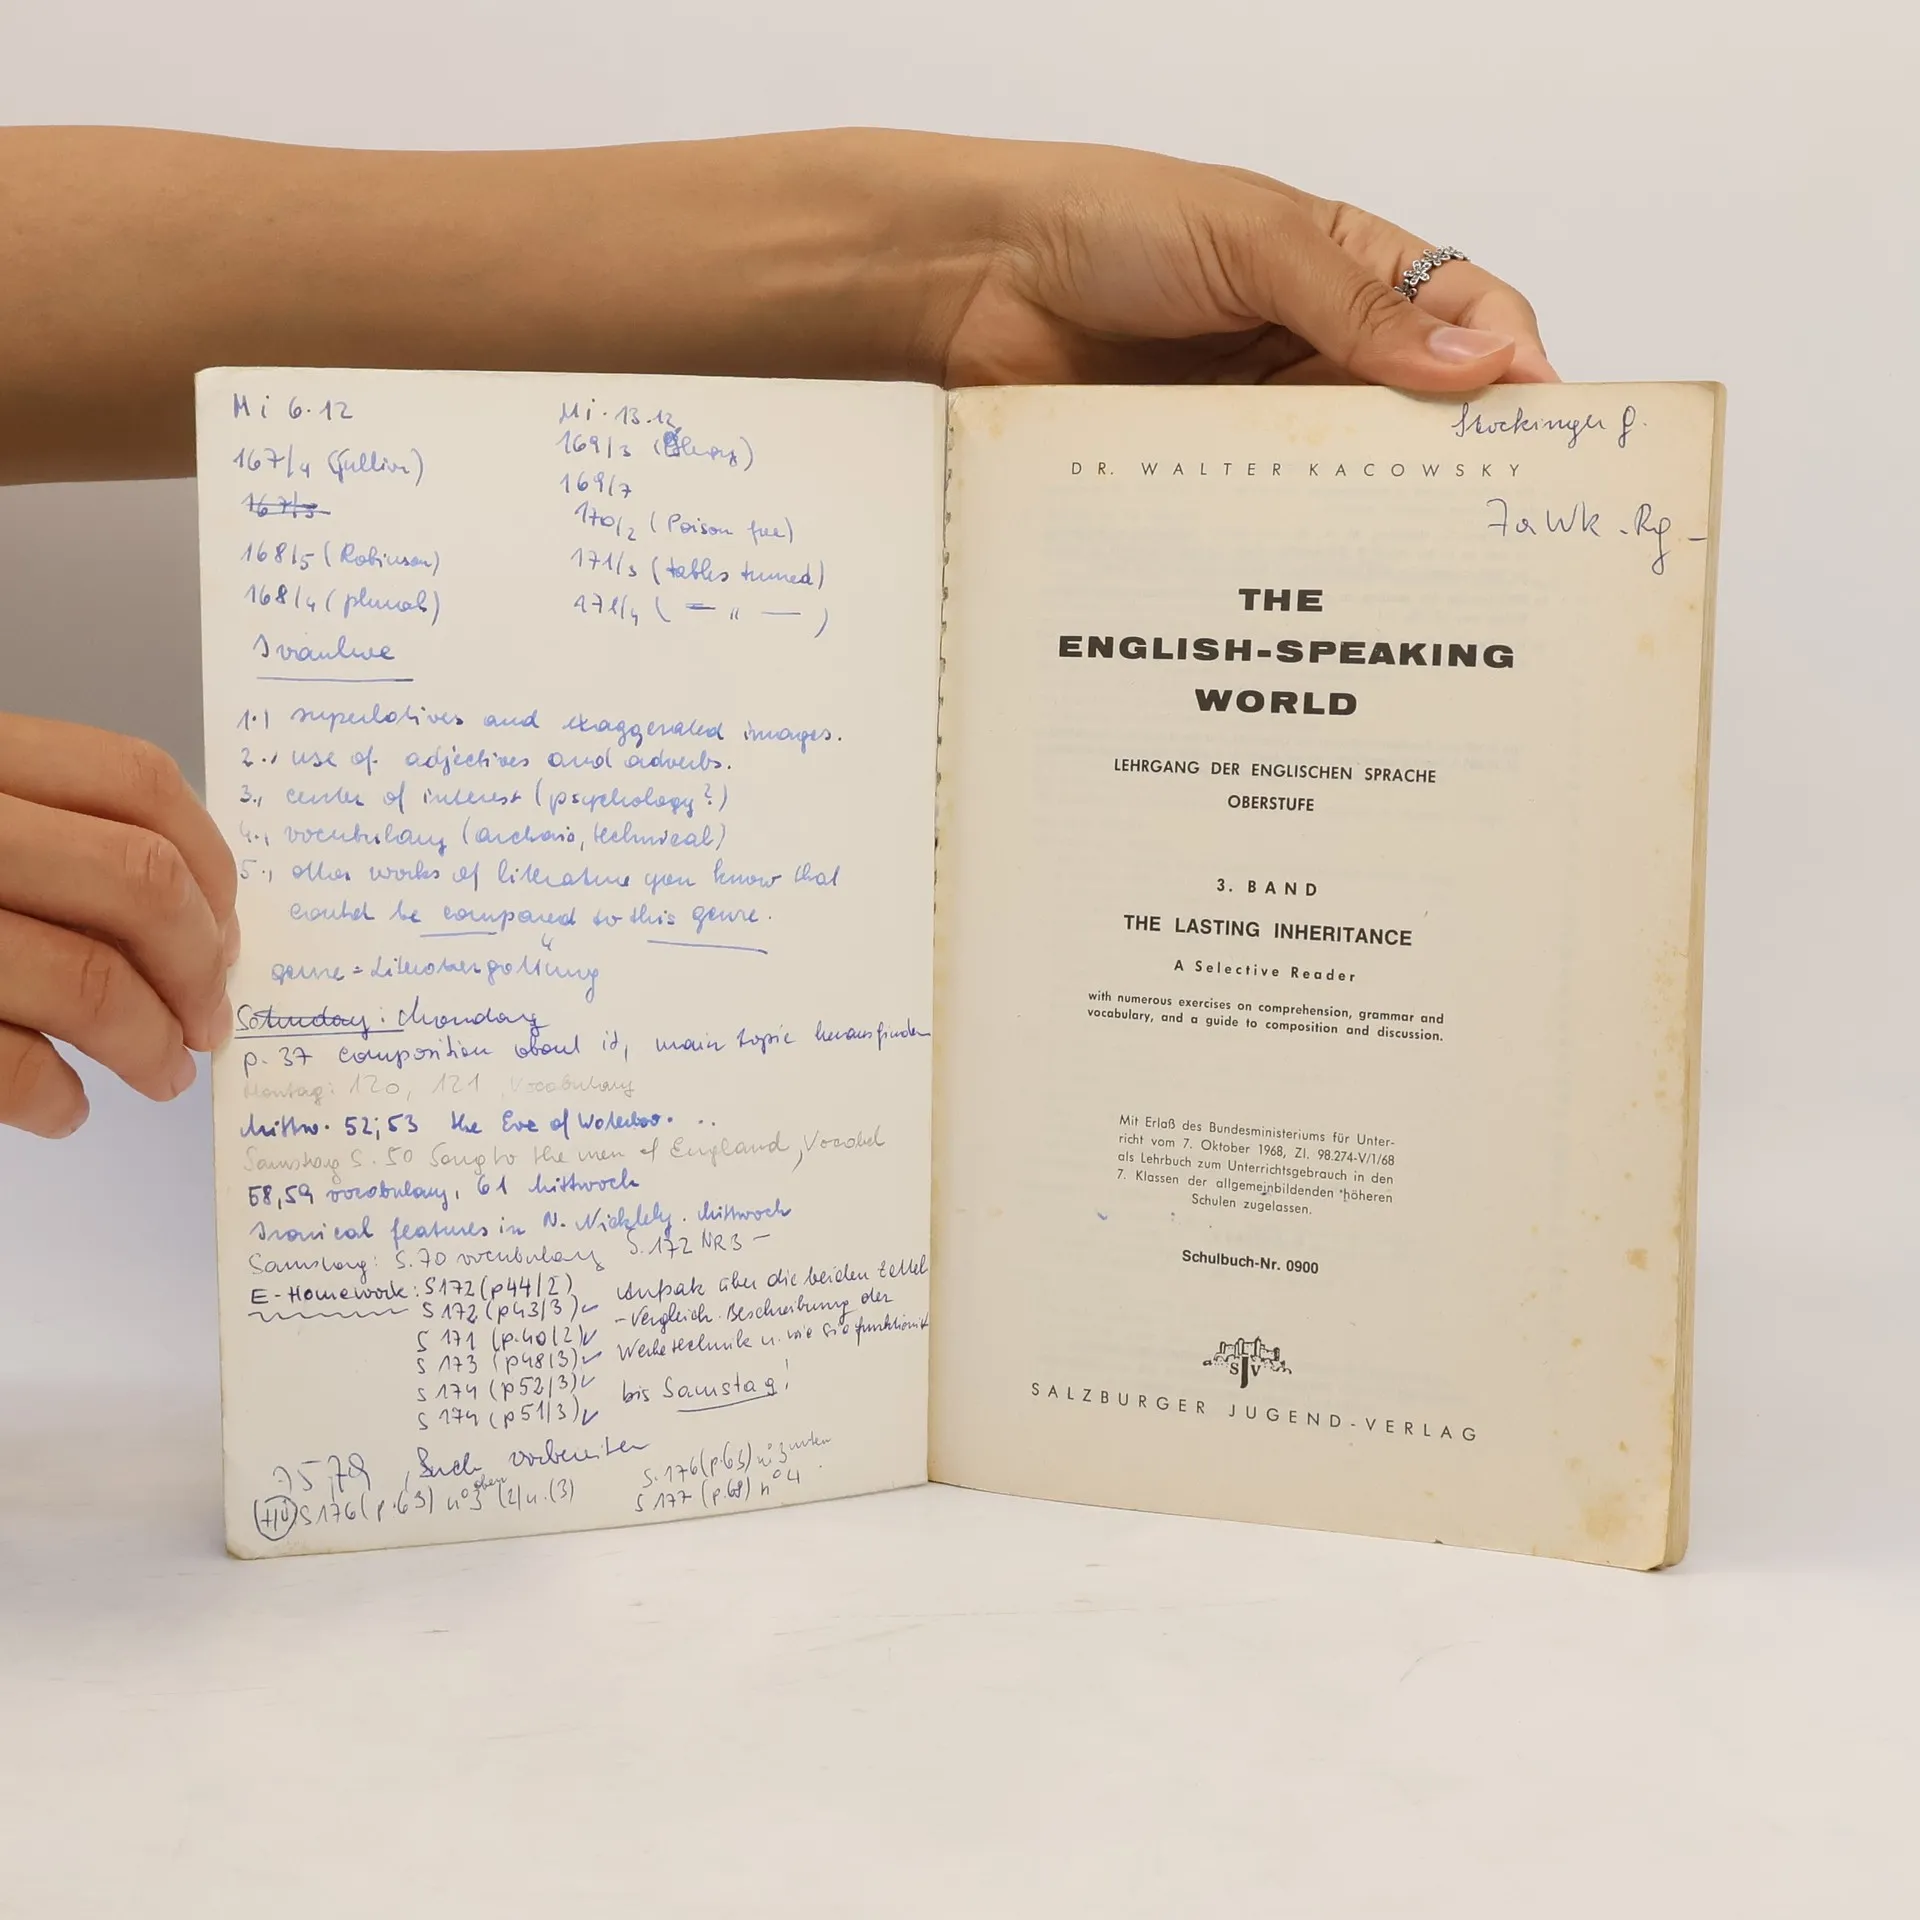 Mi 6.12
167/4 (Gulliver)
167/3
168/5 (Robinson)
168/4 (plurals)
Ivanhoe
Mi. 13.12.
169/3 (Elegy)
169/7
170/2 (Poison tree)
171/3 (tables turned)
171/4 ( — " — )
1.) superlatives and exaggerated images.
2., use of adjectives and adverbs.
3., center of interest (psychology?)
4., vocabulary (archaic, technical)
5., other works of literature you know that
could be compared to this genre.
genre = Literaturgattung
Saturday: Monday
p. 37 composition about it, main topic herausfinden
Montag: 120, 121, Vocabulary
Mittw. 52; 53 the Eve of Waterloo. ..
Samstag S. 50 Song to the men of England, Vocabel
58, 59 vocabulary, 61 Mittwoch
Ironical features in N. Nickleby. Mittwoch
Samstag: S. 70 vocabulary S. 172 NR 3 –
E-Homework: S 172 (p44/2)
S 172 (p43/3)
S 171 (p.40/2)
S 173 (p48/3)
S 174 (p52/3)
S 174 (p51/3)
Aufsatz über die beiden Zettel
- Vergleich. Beschreibung der
Werbetechnik u. wie sie funktioniert
bis Samstag!
75, 79, Buch vorbereiten
S 176 (p.63) n°3 oben (2) u. (3)
S. 176 (p.63) n°3 unten
S 177 (p.68) n°4
Stockinger G.
DR. WALTER KACOWSKY
7a Wk.-Rg
THE
ENGLISH-SPEAKING
WORLD
LEHRGANG DER ENGLISCHEN SPRACHE
OBERSTUFE
3. BAND
THE LASTING INHERITANCE
A Selective Reader
with numerous exercises on comprehension, grammar and
vocabulary, and a guide to composition and discussion.
Mit Erlaß des Bundesministeriums für Unter-
richt vom 7. Oktober 1968, Zl. 98.274-V/1/68
als Lehrbuch zum Unterrichtsgebrauch in den
7. Klassen der allgemeinbildenden höheren
Schulen zugelassen.
Schulbuch-Nr. 0900
SJV
SALZBURGER JUGEND-VERLAG